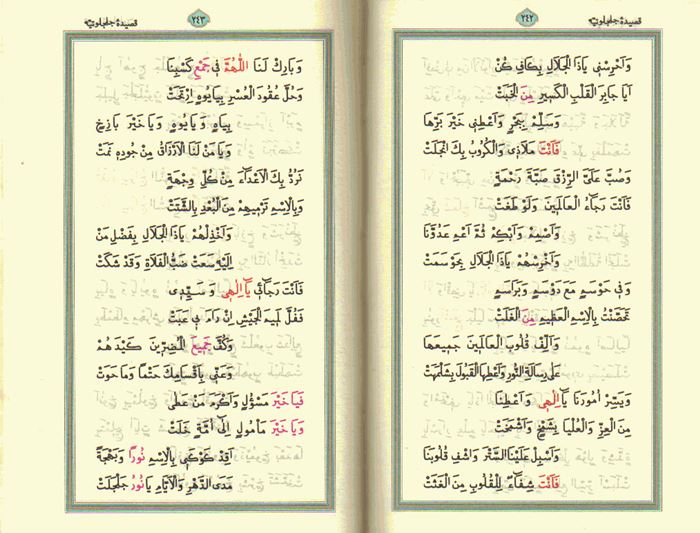 قصيدۀ جلجلوتيه
٢٤٢
وَاَحْرِسْنِي يَاذَا الْجَلَالِ بِكَافِ كُنْ
اَيَا جَابِرَ الْقَلْبِ الْكَسِيرِ مِنَ الْخَبَتْ
وَسَلِّمْ بِبَحْرٍ وَاَعْطِنِي خَيْرَ بَرِّهَا
فَاَنْتَ مَلَاذِي وَالْكُرُوبُ بِكَ انْجَلَتْ
وَصُبَّ عَلَيَّ الرِّزْقَ صَبَّةَ رَحْمَةٍ
فَاَنْتَ رَجَاءُ الْعَالَمِينَ وَلَوْ طَغَتْ
وَاَصْمِمْ وَاَبْكِمْ ثُمَّ اَعْمِ عَدُوَّنَا
وَاَخْرِسْهُمْ يَاذَا الْجَلَالِ بِحَوْسَمَتْ
وَفِي حَوْسَمٍ مَعَ دَوْسَمٍ وَبَرَاسَمٍ
تَحَصَّنْتُ بِالْاِسْمِ الْعَظِيمِ مِنَ الْغَلَتْ
وَاَلِّفْ قُلُوبَ الْعَالَمِينَ جَمِيعَهَا
وَيَسِّرْ اُمُورَنَا يَا اِلٰهِي وَاَعْطِنَا
مِنَ الْعِزِّ وَالْعُلْيَا بِشَمْخٍ وَاَشْمَخَتْ
وَاَسْبِلْ عَلَيْنَا السِّتْرَ وَاشْفِ قُلُوبَنَا
فَاَنْتَ شِفَاءٌ لِلْقُلُوبِ مِنَ الْغَثَتْ
قصيدۀ جلجلوتيه
٢٤٣
وَبَارِكْ لَنَا اللّٰهُمَّ فِي جَمْعِ كَسْبِنَا
وَحُلَّ عُقُودَ الْعُسْرِ بِيَايُوهٍ اِرْتَحَتْ
بِيَاهٍ وَيَايُوهٍ وَيَاخَيْرَ بَارِخٍ
وَيَامَنْ لَنَا الْاَرْزَاقُ مِنْ جُودِهِ نَمَتْ
نَرُدُّ بِكَ الْاَعْدَاءَ مِنْ كُلِّ وِجْهَةٍ
وَبِالْاِسْمِ تَرْمِيهِمْ مِنَ الْبُعْدِ بِالشَّتَتْ
وَاَخْذِلْهُمْ يَاذَا الْجَلَالِ بِفَضْلِ مَنْ
اِلَيْهِ سَعَتْ ضَبُّ الْفَلَاةِ وَقَدْ شَكَتْ
فَاَنْتَ رَجَائِي يَا اِلٰهِي وَسَيِّدِي
فَفُلَّ لَمِيمَ الْجَيْشِ اِنْ رَامَ بِي عَبَتْ
وَكُفَّ جَمِيعَ الْمُضِرِّينَ كَيْدَهُمْ
وَعَنِّي بِاَقْسَامِكَ حَتْمًا وَمَا حَوَتْ
فَيَا خَيْرَ مَسْؤُلٍ وَاَكْرَمَ مَنْ عَطٰى
وَيَا خَيْرَ مَاْمُولٍ اِلٰى اُمَّةٍ خَلَتْ
اَقِدْ كَوْكَبِي بِالْاِسْمِ نُورًا وَبَهْجَةً
مَدَى الدَّهْرِ وَالْاَيَّامِ يَا نُورُ جَلْجَلَتْ